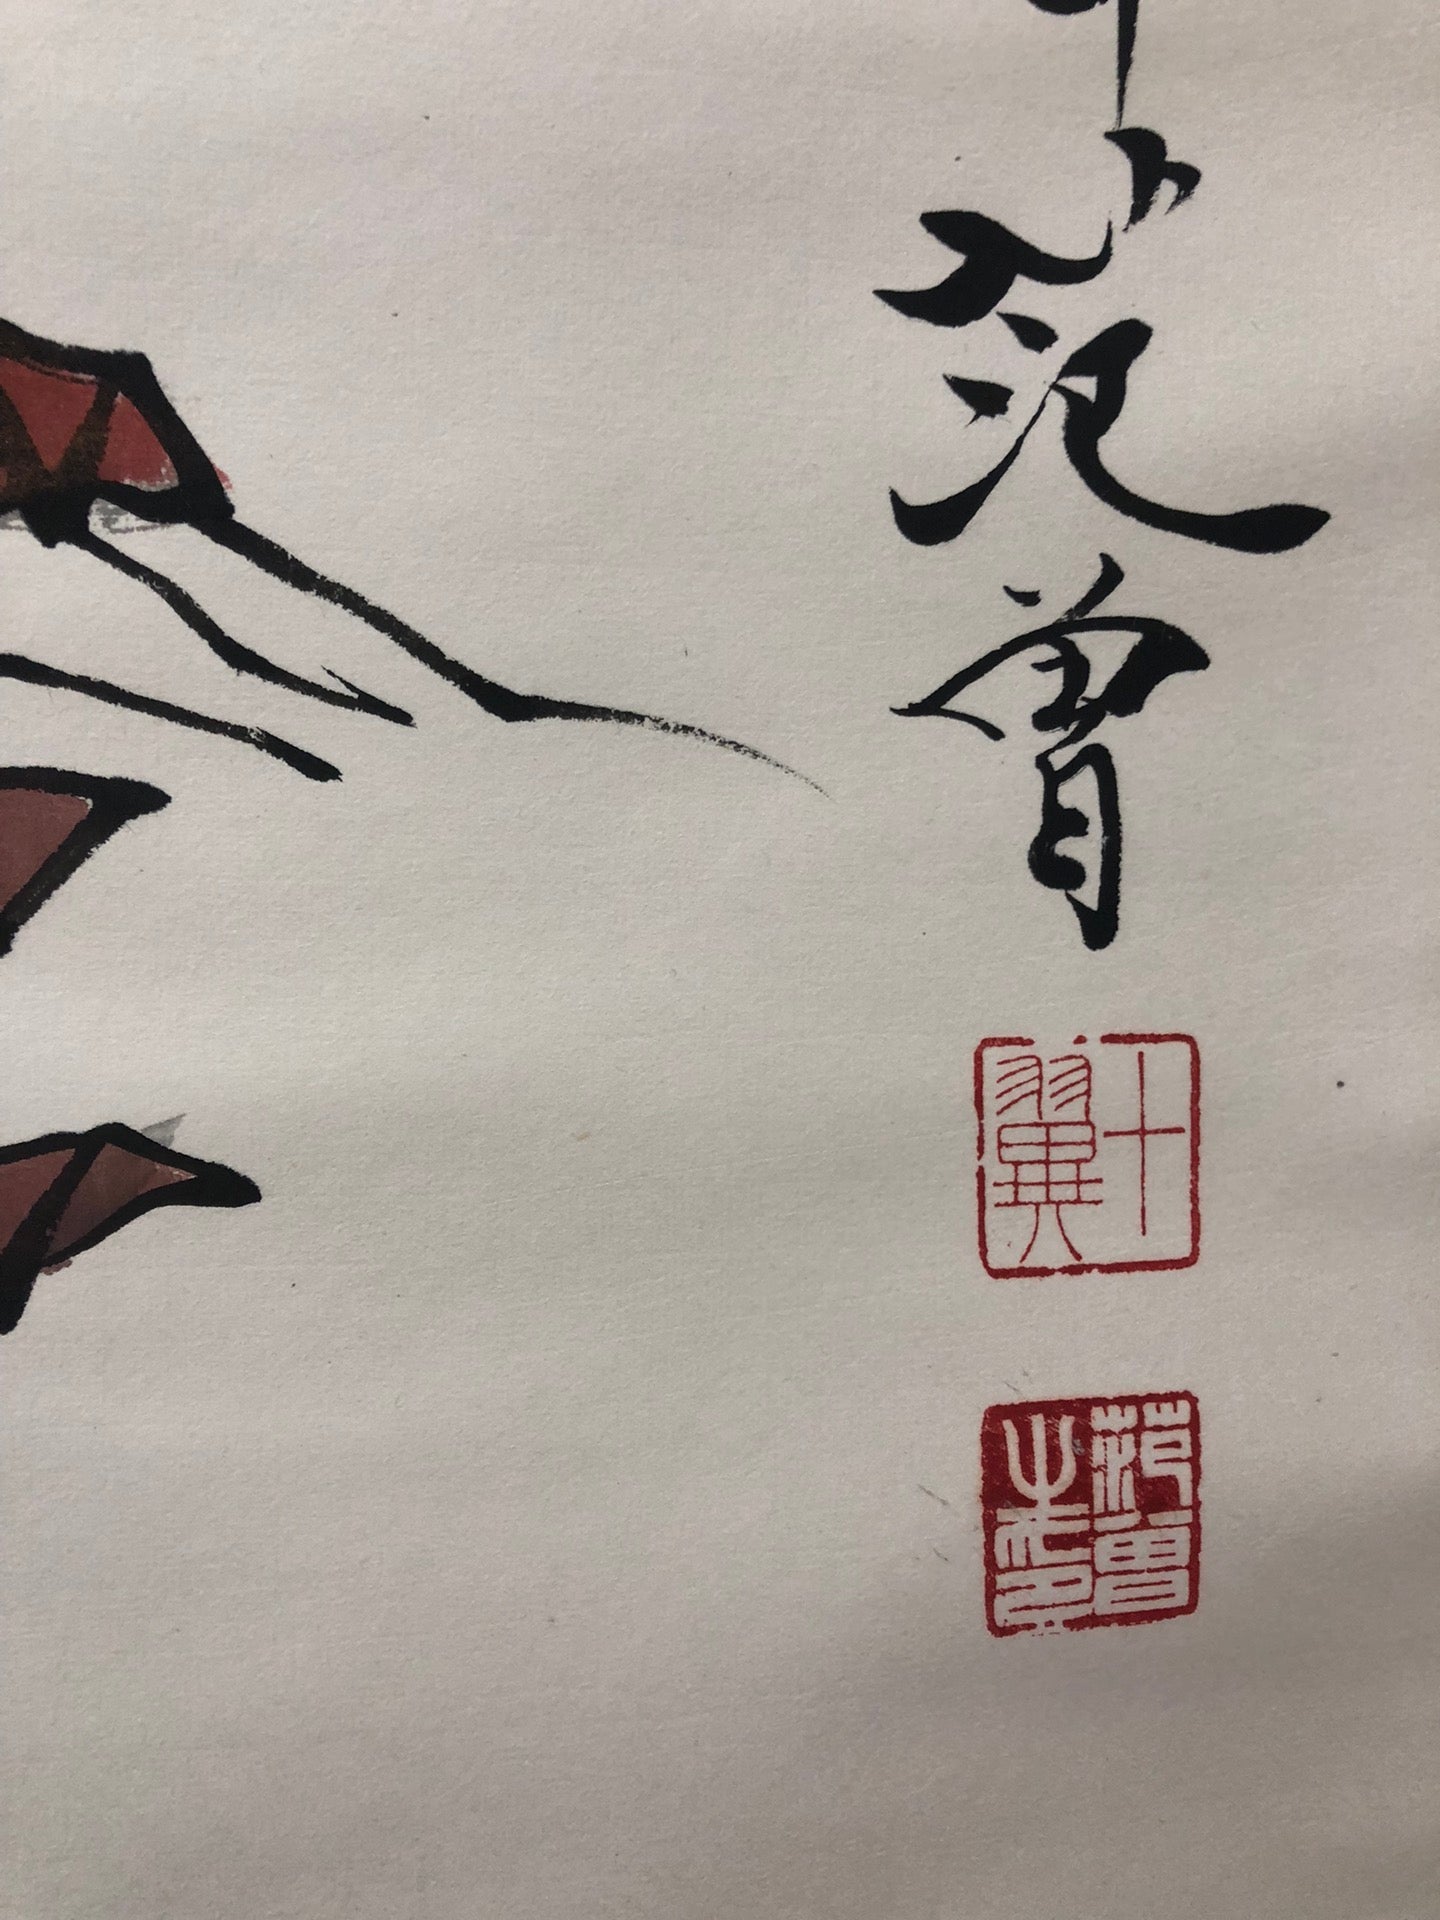 范曾
十翼
范曾之鉨